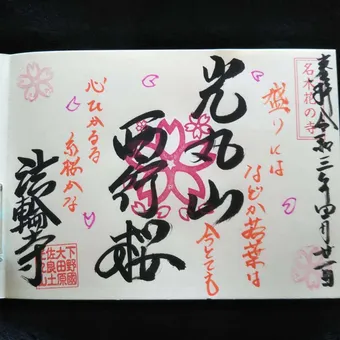 奉拝 令和三年四月廿一日
名木桜の寺
盛りには
などか若葉は
今とても
光丸山
西行桜
心ひかるる
糸桜かな
法輪寺
下野國
大田原
佐良土